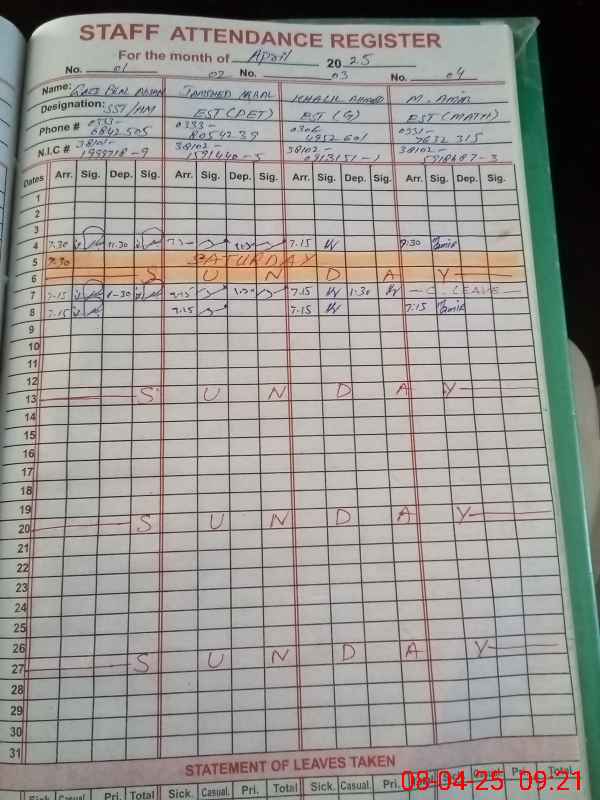 STAFF ATTENDANCE REGISTER
For the month of April 2025
No. 01 02 No. 03 No. 04
Name: JAMSHED KHALIL AHMAD M. Amir
Designation: SST/HM EST (PET) EST (G) EST (MATH)
Phone # 0333- 0333- 0306 0331-
6842505 8054239 4952601 7632315
N.I.C # 38101- 38102 38102- 38102-
1591440-5 0913151-1
Dates Arr. Sig. Dep. Sig. Arr. Sig. Dep. Sig. Arr. Sig. Dep. Sig. Arr. Sig. Dep. Sig.
1
2
3
4 7.30 11.30 7.15 7:30 Tamir
5 7.30 SATURDAY
6 S U N D A Y
7 7-15 1-30 7.15 1.30 7.15 1:30 C. LEAVE
8 7.15 7.15 7.15 7:15 Tamir
9
10
11
12
13 S U N D A Y
14
15
16
17
18
19
20 S U N D A Y
21
22
23
24
25
26
27 S U N D A Y
28
29
30
31
STATEMENT OF LEAVES TAKEN
Sick Casual. Pri. Total Sick. Casual. Pri. Total Sick. Casual. Pri. Total Sick. Casual Pri. Total
08-04-25 09:21